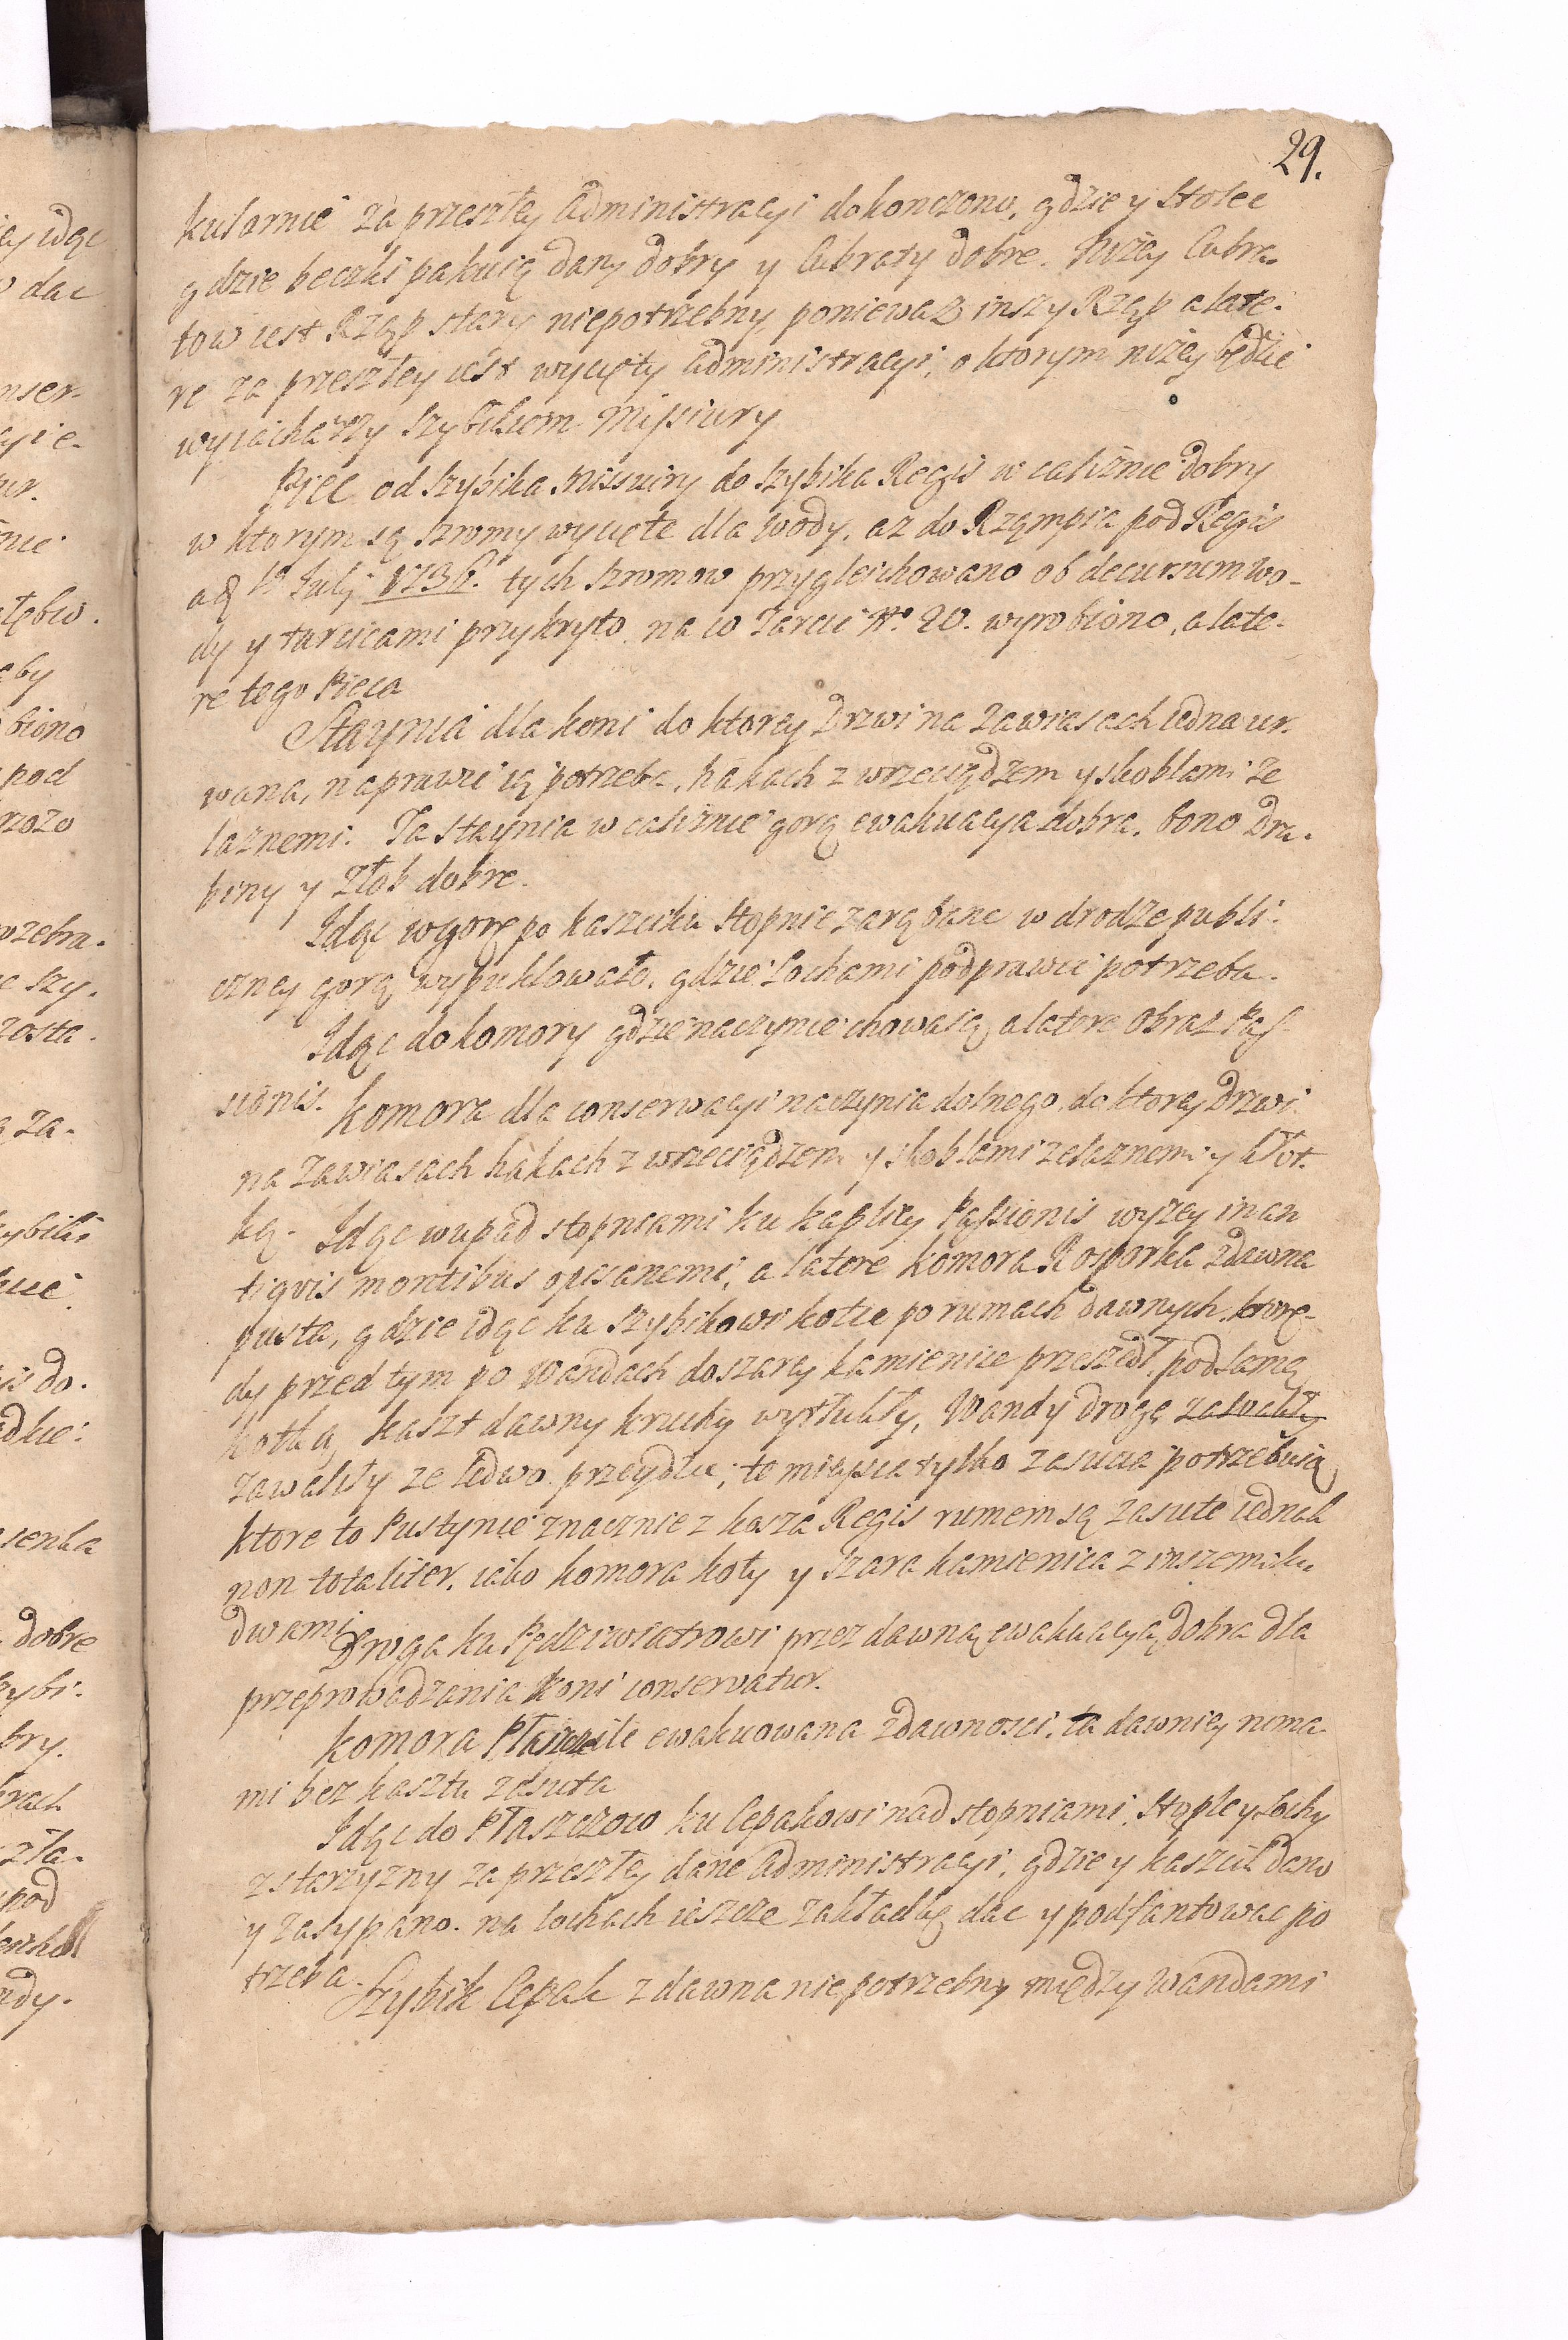 29.
kularnie za przeszłey Administracyi dokonczono, gdzie y Stolec
gdzie beczki pakuią dany dobry y Cubraty dobre. Niżey Cubra-
tow iest Rząp stary niepotrzebny, poniewasz inszy Rząp a late-
re za przeszłey iest wycięty Administracyi, o ktorym niżey będzie
wyiachawszy Szybikiem Missiury
Piec od Szybika Missiury do Szybika Regis w caliznie dobry
w ktorym są Szromy wycięte dla wody, az do Rząmpia pod Regis
Julij 1736. tych Szromow przygleichowano ob decursum wo-
dy y tarcicami przykryto, na co Tarcic No. 20. wyrobiono, a late-
re tego Pieca
Staynia dla koni do ktorey Drzwi na zawiasach iedna ur-
wana, naprawic ią potrzeba, hakach z wrzeciądzem y skoblami że
laznemi. Ta staynia w caliznie gorą ewakuacya dobra, bono Dra-
biny y Złob dobre.
Idąc w gorę po kaszciku Stopnie zarąbane w drodze publi-
czney gorą wypuklowało, gdzie Lochami podprawic potrzeba.
Idąc do komory gdzie naczynie chowaią, a latere Obraz Pas-
sionis. Komora dla conserwacyi naczynia dolnego, do ktorey Drzwi
na zawiasach hakach z wrzeciądzem y skoblami zelaznemi y Kłot-
ką. Idąc w upad stopniami ku kaplicy Passionis wyzey in an
tiqvis montibus opisanemi, a latere komora Rosporka zdawna
pusta, gdzie idąc ku Szybikowi kotce po rumach dawnych, ktorę-
dy przed tym po Wandach do szarey kamienice przeszedł, pod samą
kotką, kaszt dawny kruchy wytłukły, Wandy drogę zalwaliły
zawaliły ze ledwo przeydzie, te mieysca tylko zasucia potrzebuią
ktore to Pustynie znacznie z kosza Regis rumem są zasute iednak
non totaliter, iako komora koty y szara kamienica z inszemiku
dwami.
Droga ku Pędziwiatrowi przez dawną ewakuacyą dobra dla
przeprowadzania koni conservatur.
Komora ewakuowana zdawnosci, ta dawniey ruma
mi bez kasztu zasuta
Idąc do Płaszczow ku Cepakowi nad stopniami, Stęple y Lochy
z starzyzny za przeszłey dane Administracyi, gdzie y kaszcik dano
y zasypano. na lochach ieszcze zakładkę dac y podfantowac po
trzeba.
Szybik Cepak z dawna niepotrzebny między Wandami